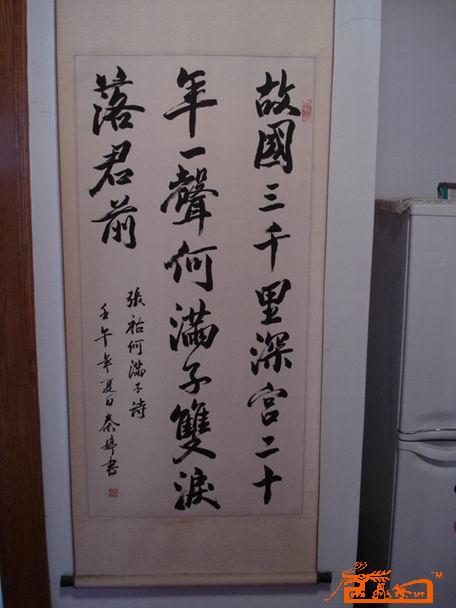 故國三千里深宮二十
年一聲何滿子雙淚
落君前
張祜何滿子詩
壬午年夏日秦婷書
TM